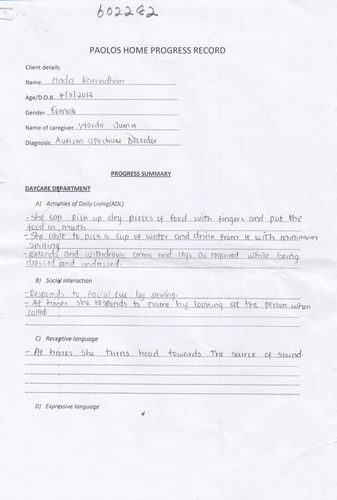 602282
PAOLOS HOME PROGRESS RECORD
Client details
Name Nadia Ramadhan
Age/D.O.B 4/11/2012
Gender Female
Name of caregiver Warda Juma
Diagnosis Autism Spectrum Disorder
PROGRESS SUMMARY
DAYCARE DEPARTMENT
A) Activities of Daily Living(ADL)
- She can pick up dry pieces of food with fingers and put the
food in mouth
- She able to pick a cup of water and drink from it with minimum
spilling
- extends and withdraws arms and legs as required while being
dressed and undressed.
B) Social interaction
- Responds to facial cue by smiling.
- At times she responds to name by looking at the person when
called.
C) Receptive language
- At times she turns head towards The source of sound.
D) Expressive language